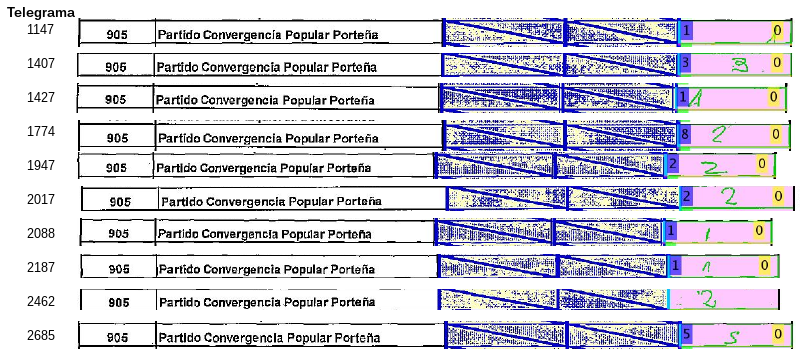 Telegrama
1147 905 Partido Convergencia Popular Porteña 1 0
1407 905 Partido Convergencia Popular Porteña 3 3 0
1427 905 Partido Convergencia Popular Porteña 1 1 0
1774 905 Partido Convergencia Popular Porteña 8 2 0
1947 905 Partido Convergencia Popular Porteña 2 2 0
2017 905 Partido Convergencia Popular Porteña 2 2 0
2088 905 Partido Convergencia Popular Porteña 1 1 0
2187 905 Partido Convergencia Popular Porteña 1 1 0
2462 905 Partido Convergencia Popular Porteña 2
2685 905 Partido Convergencia Popular Porteña 5 5 0